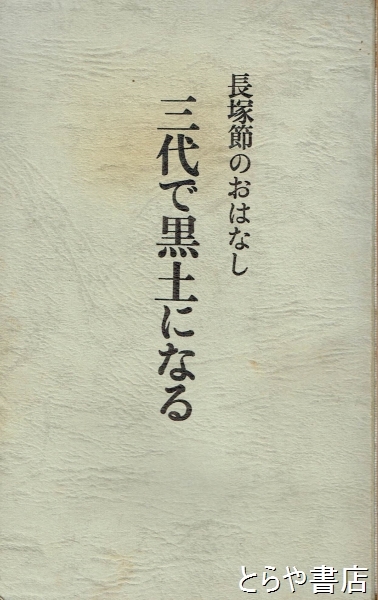 長塚節のおはなし
三代で黒土になる
とらや書店